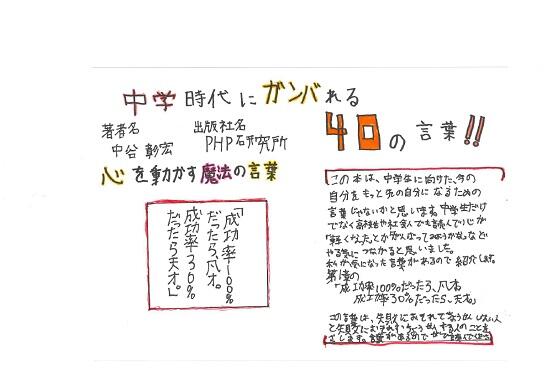 中学時代にガンバれる
40の言葉!!
著者名
中谷彰宏
出版社名
PHP研究所
心を動かす魔法の言葉
「成功率100%
だったら、凡才。
成功率30%
だったら天才。」
この本は、中学生に向けた、今の
自分をもっと先の自分になるための
言葉じゃないかと思います。中学生だけ
でなく高校生や社会人でも読んで心が
「軽くなった」とか「がんばってみようかな」など
やる気につながると思いました。
私が気になった言葉があるので紹介します。
第1章の
「成功率100%だったら、凡才
成功率30%だったら、天才。」
この言葉は、失敗におそれてちょうせんしない人
と失敗におそれずちょうせんする人のことを